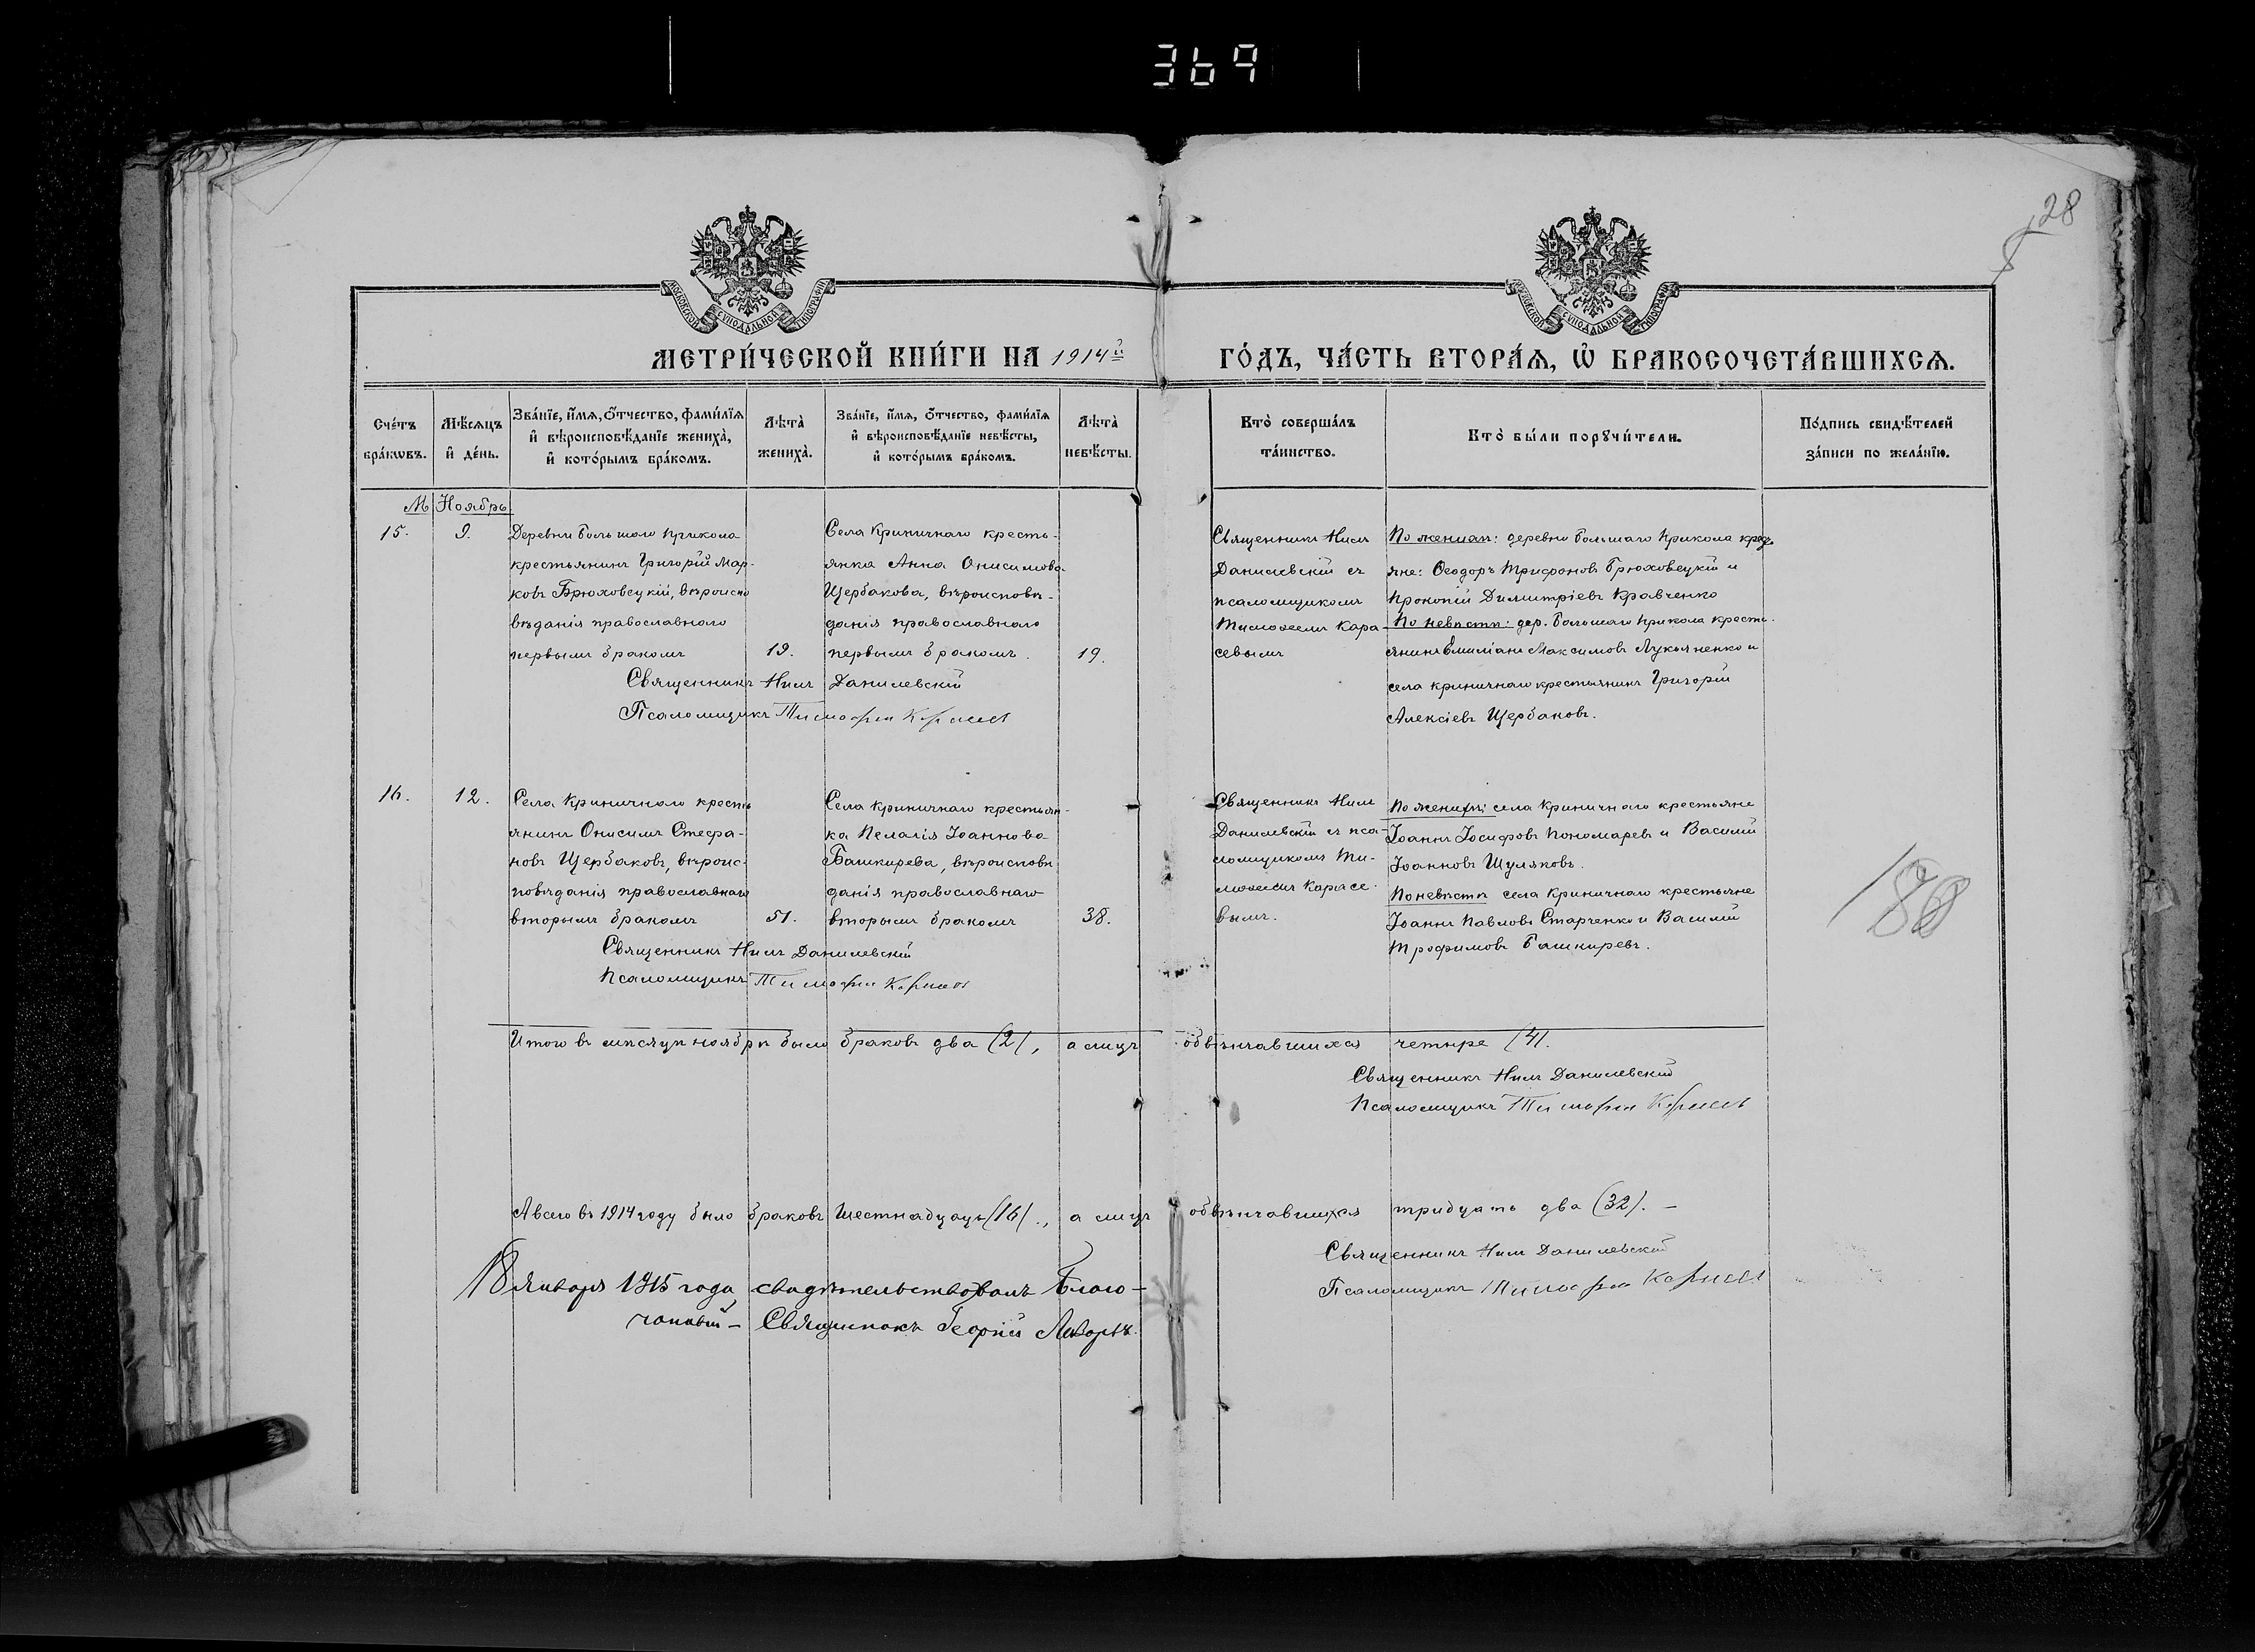 369
128
МОСКОВСКОЙ СѴНОДАЛЬНОЙ ТИПОГРАФІИ
МОСКОВСКОЙ СѴНОДАЛЬНОЙ ТИПОГРАФІИ
МЕТРИ́ЧЕСКОЙ КНИ́ГИ НА 1914й
ГО́ДЪ, ЧА́СТЬ ВТОРА́Я, Ѡ҆ БРАКОСОЧЕТА́ВШИХСѦ.
Сче́тъ бра́кѡвъ.
Мѣ́сѧцъ и҆ де́нь.
Зва́нїе, и҆́мѧ, о҆́тчество, фами́лїѧ и҆ вѣроисповѣ́данїе жениха̀, и҆ кото́рымъ бра́комъ.
Лѣта̀ жениха̀.
Зва́нїе, и҆́мѧ, о҆́тчество, фами́лїѧ и҆ вѣроисповѣ́данїе невѣ́сты, и҆ кото́рымъ бра́комъ.
Лѣта̀ невѣ́сты.
Кто̀ соверша́лъ та́инство.
Кто̀ бы́ли порꙋчи́тели.
По́дпись свидѣ́телей за́писи по жела́нїю.
М Ноябрь
15.
9.
Деревни Большого Прикола
крестьянинъ Григорій Мар-
ковъ Брюховецкій, вѣроиспо
вѣданія православнаго
первымъ бракомъ
19.
Села Криничнаго кресть-
янка Анна Онисимова
Щербакова, вѣроисповѣ-
данія православнаго
первымъ бракомъ.
19.
Священникъ Нилъ Данилевскій
Псаломщикъ Тимофей Карасев
Священникъ Нилъ
Данилевскій съ
псаломщикомъ
Тимофеемъ Кара-
севымъ
По женихѣ: деревни Большаго Прикола кресть
яне: Ѳеодоръ Трифоновъ Брюховецкій и
Прокопій Димитріевъ Кравченко
По невѣстѣ: дер. Большаго Прикола кресть-
янинъ Емиліанъ Максимовъ Лукьяненко и
села Криничнаго крестьянинъ Григорій
Алексіевъ Щербаковъ.
16.
12.
Села Криничнаго кресть
янинъ Онисимъ Стефа-
новъ Щербаковъ, вѣроис-
повѣданія православнаго
вторымъ бракомъ
51.
Села Криничнаго крестьян-
ка Пелагія Іоаннова
Башкирева, вѣроисповѣ
данія православнаго
вторымъ бракомъ
38.
Священникъ Нилъ Данилевскій
Псаломщикъ Тимофей Карасев
Священникъ Нилъ
Данилевскій съ пса-
ломщикомъ Ти-
мофеемъ Карасе-
вымъ.
По женихѣ: села Криничнаго крестьяне
Іоаннъ Іосифовъ Пономаревъ и Василій
Іоанновъ Шуляковъ.
По невѣстѣ села Криничнаго крестьяне
Іоаннъ Павловъ Старченко и Василій
Трофимовъ Башкиревъ.
Итого въ мѣсяцѣ ноябрѣ было браковъ два (2), а лицъ обвѣнчавшихся четыре (4).
Священникъ Нилъ Данилевскій
Псаломщикъ Тимофей Карасев
А всего въ 1914 году было браковъ шестнадцать (16)., а лицъ обвѣнчавшихся тридцать два (32). –
Священникъ Нилъ Данилевскій
Псаломщикъ Тимофей Карасев
18 января 1915 года свидѣтельствовалъ Благо-
чинный – Священникъ Георгій